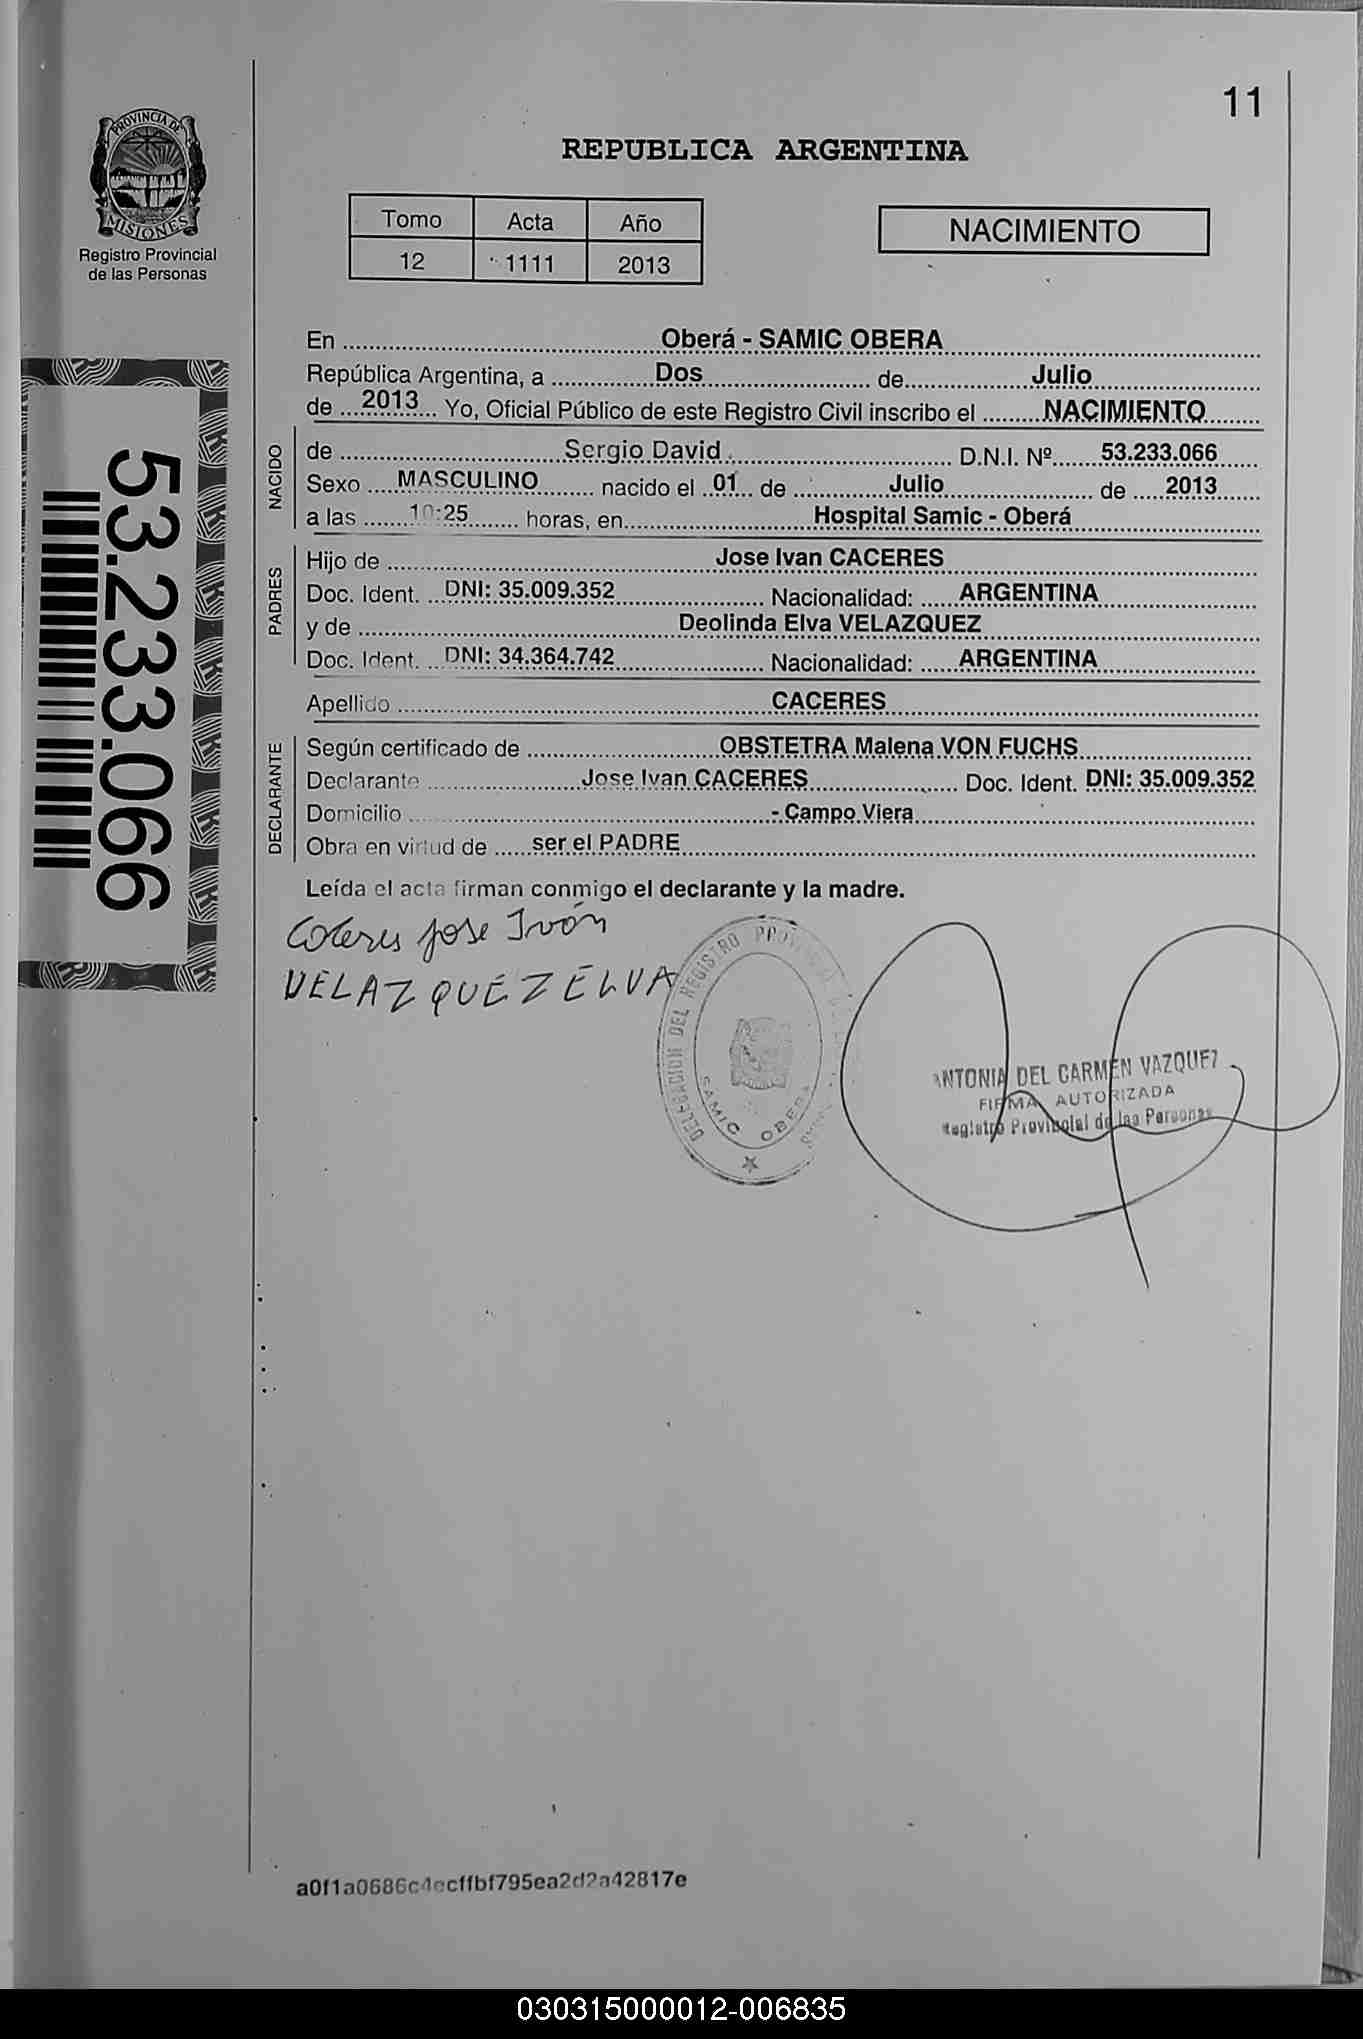 11
PROVINCIA DE
MISIONES
Registro Provincial
de las Personas
REPUBLICA ARGENTINA
Tomo Acta Año
12 1111 2013
NACIMIENTO
En Oberá - SAMIC OBERA
República Argentina, a Dos de Julio
de 2013 Yo, Oficial Público de este Registro Civil inscribo el NACIMIENTO
NACIDO
de Sergio David D.N.I. Nº 53.233.066
Sexo MASCULINO nacido el 01 de Julio de 2013
a las 10:25 horas, en Hospital Samic - Oberá
PADRES
Hijo de Jose Ivan CACERES
Doc. Ident. DNI: 35.009.352 Nacionalidad: ARGENTINA
y de Deolinda Elva VELAZQUEZ
Doc. Ident. DNI: 34.364.742 Nacionalidad: ARGENTINA
Apellido CACERES
DECLARANTE
Según certificado de OBSTETRA Malena VON FUCHS
Declarante Jose Ivan CACERES Doc. Ident. DNI: 35.009.352
Domicilio - Campo Viera
Obra en virtud de ser el PADRE
Leída el acta firman conmigo el declarante y la madre.
53.233.066
Caceres Jose Iván
VELAZQUEZ ELVA
DELEGACION DEL REGISTRO
SAMIC OBERA
ANTONIA DEL CARMEN VAZQUEZ
FIRMA AUTORIZADA
Registro Provincial de las Personas
a0f1a0686c4ecffbf795ea2d2a42817e
030315000012-006835